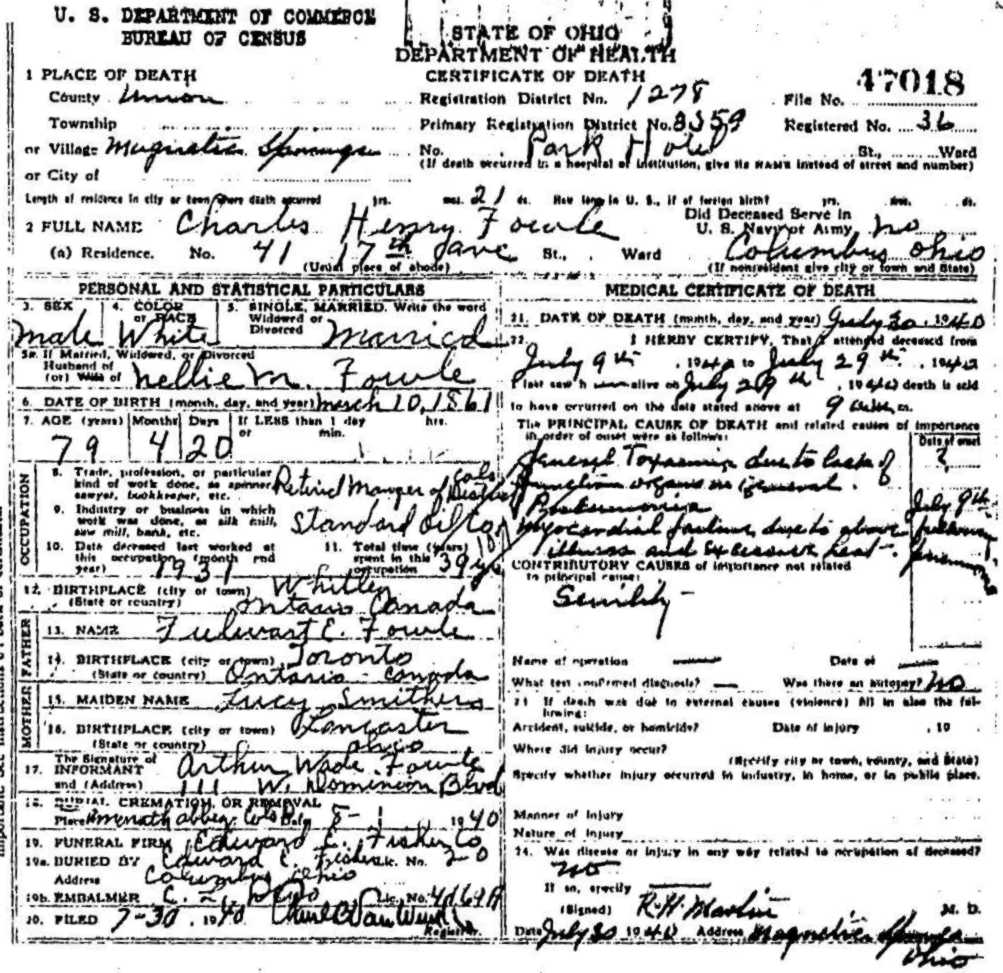 U. S. DEPARTMENT OF COMMERCE
BUREAU OF CENSUS
STATE OF OHIO
DEPARTMENT OF HEALTH
CERTIFICATE OF DEATH
1 PLACE OF DEATH
County Union
Registration District No. 1278
File No. 47018
Township
Primary Registration District No. 8359
Registered No. 36
or Village Magnetic Springs
No. Park Hotel St., Ward
or City of
(If death occurred in a hospital or institution, give its NAME instead of street and number)
Length of residence in city or town where death occurred yrs. mos. 21 ds. How long in U. S., if of foreign birth? yrs. mos. ds.
2 FULL NAME Charles Henry Fowle
Did Deceased Serve in
U. S. Navy or Army no
(a) Residence. No. 41 17th Ave St., Ward Columbus Ohio
(Usual place of abode)
(If nonresident give city or town and State)
PERSONAL AND STATISTICAL PARTICULARS
3. SEX Male
4. COLOR or RACE White
5. SINGLE, MARRIED. Write the word
Widowed or
Divorced Married
5a. If Married, Widowed, or Divorced
Husband of
(or) Wife of Nellie M. Fowle
6. DATE OF BIRTH (month, day, and year) March 10, 1861
7. AGE (years) Months Days If LESS than 1 day hrs.
or min.
79 4 20
OCCUPATION
8. Trade, profession, or particular
kind of work done, as spinner,
sawyer, bookkeeper, etc. Retired Manger of
9. Industry or business in which
work was done, as silk mill,
saw mill, bank, etc. Standard Oil
10. Date deceased last worked at
this occupation (month and
year) 1931
11. Total time (years)
spent in this
occupation 39 yrs
12. BIRTHPLACE (city or town)
(State or country) Ontario Canada
FATHER
13. NAME E. Fowle
14. BIRTHPLACE (city or town) Toronto
(State or country) Ontario - Canada
MOTHER
15. MAIDEN NAME Lucy Smithers
16. BIRTHPLACE (city or town) Lancaster
(State or country) Ohio
17. The Signature of
INFORMANT Arthur Wade Fowle
and (Address) 111 W. Dominion Blvd
18. BURIAL, CREMATION, OR REMOVAL
Place abbey Date 8-1 1940
19. FUNERAL FIRM Edward E. Fisher Co
19a. BURIED BY Edward E. Fisher Lic. No. 20
Address Columbus Ohio
19b. EMBALMER Lic. No.
20. FILED 7-30 1940
Registrar.
MEDICAL CERTIFICATE OF DEATH
21. DATE OF DEATH (month, day, and year) July 30 1940
22. I HERBY CERTIFY, That I attended deceased from
July 9th, 1940 to July 29th, 1940
I last saw h im alive on July 29th, 1940 death is said
to have occurred on the date stated above at 9 m.
The PRINCIPAL CAUSE OF DEATH and related causes of importance
in order of onset were as follows:
Date of onset
General Toxaemia due to lack of
function organs in general. ?
July 9th
myocardial failure due to above
illness and excessive heat-
CONTRIBUTORY CAUSES of importance not related
to principal cause:
Senility-
Name of operation Date of
What test confirmed diagnosis? Was there an autopsy? no
23 If death was due to external causes (violence) fill in also the fol-
lowing:
Accident, suicide, or homicide? Date of injury , 19
Where did injury occur?
(Specify city or town, county, and State)
Specify whether injury occurred in industry, in home, or in public place.
Manner of Injury
Nature of Injury
24. Was disease or injury in any way related to occupation of deceased?
no
If so, specify
(Signed) M. D.
Date July 30 1940 Address Magnetic Springs
Ohio